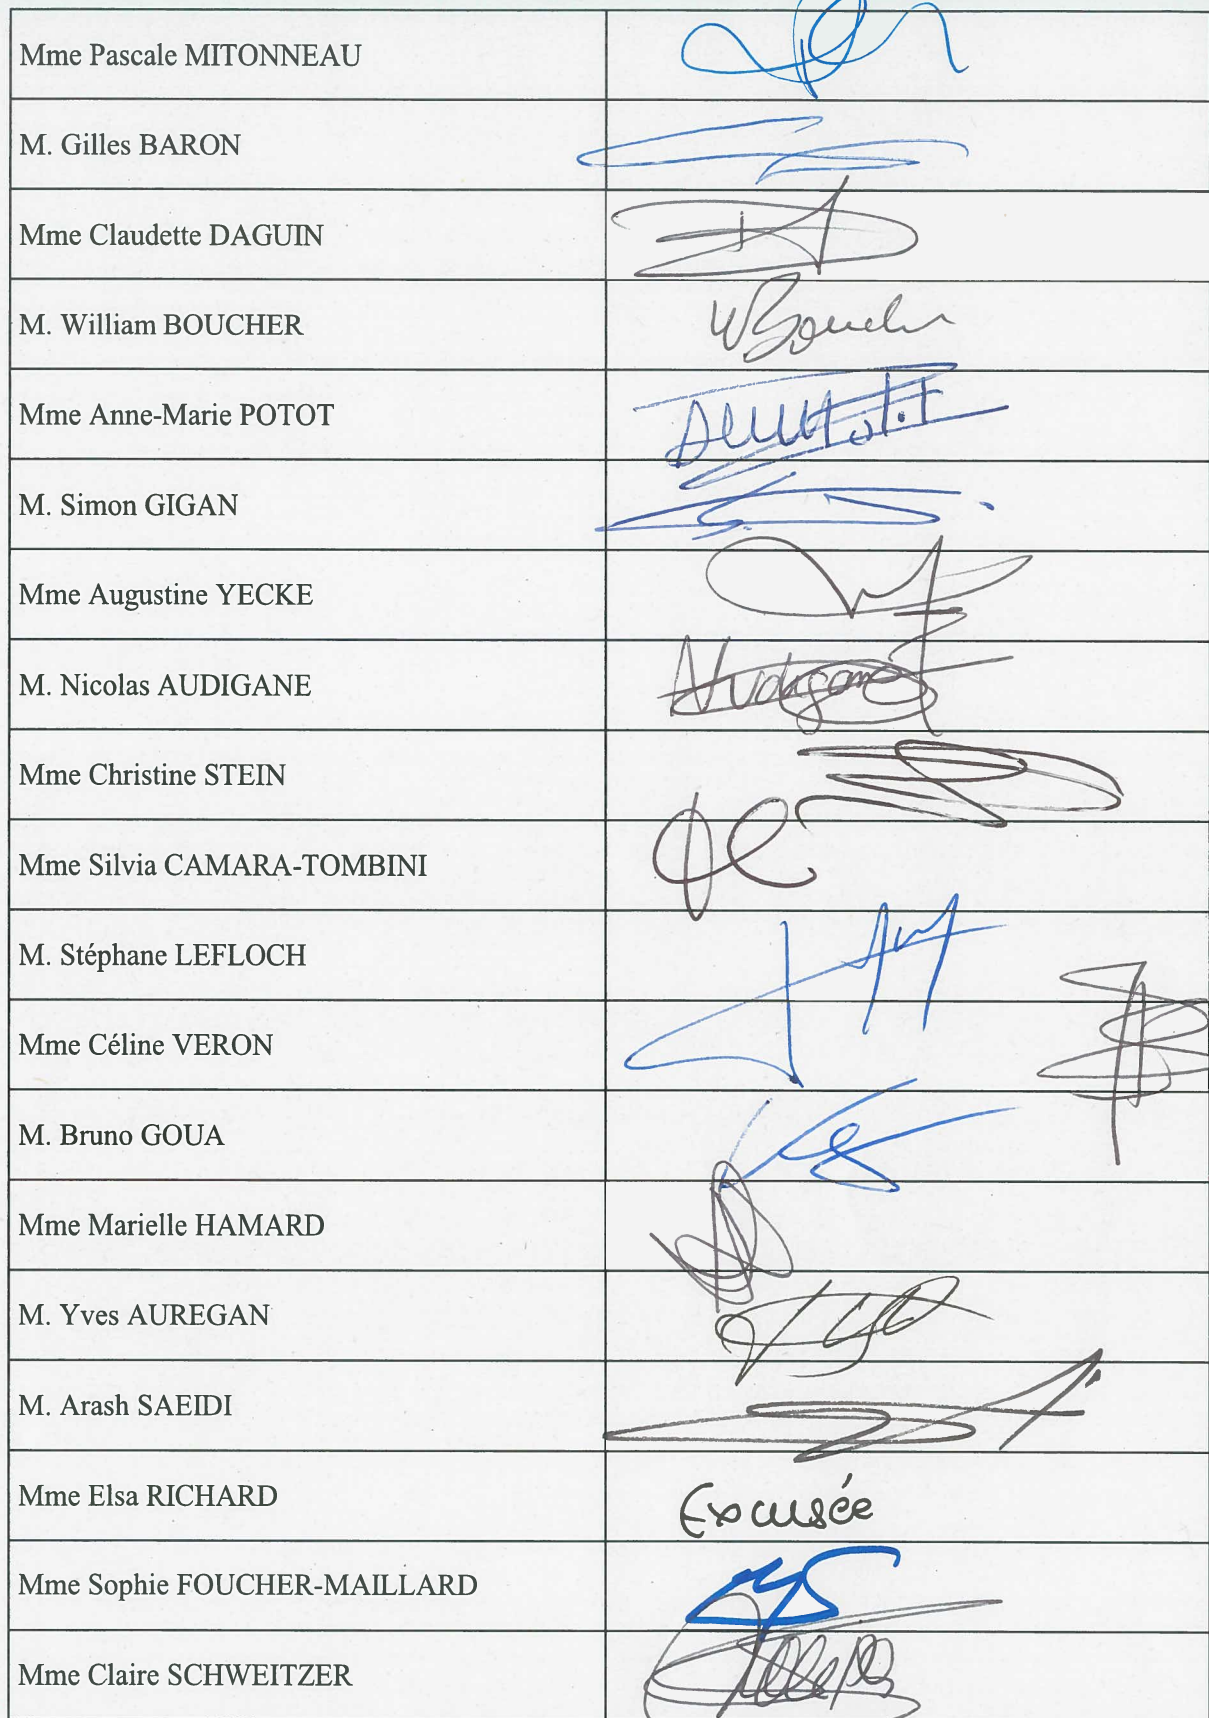 Mme Pascale MITONNEAU
M. Gilles BARON
Mme Claudette DAGUIN
M. William BOUCHER
WBoucher
Mme Anne-Marie POTOT
M. Simon GIGAN
Mme Augustine YECKE
M. Nicolas AUDIGANE
Audigane
Mme Christine STEIN
Mme Silvia CAMARA-TOMBINI
M. Stéphane LEFLOCH
Mme Céline VERON
M. Bruno GOUA
Mme Marielle HAMARD
M. Yves AUREGAN
M. Arash SAEIDI
Mme Elsa RICHARD
Excusée
Mme Sophie FOUCHER-MAILLARD
Mme Claire SCHWEITZER